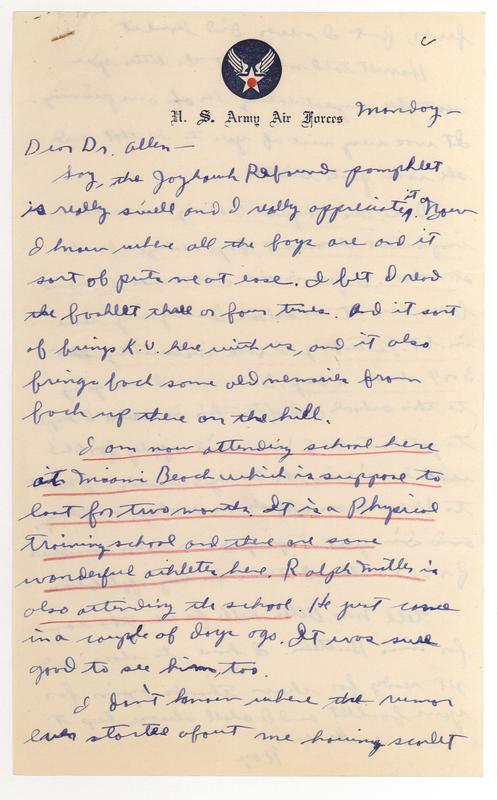 U. S. Army Air Forces
Monday—
Dear Dr. Allen—
Say, the Jayhawk Rebound pamphlet
is really swell and I really appreciate it. Now
I know where all the boys are and it
sort of puts me at ease. I bet I read
the booklet three or four times. And it sort
of brings K.U. here with us, and it also
brings back some old memories from
back up there on the hill.
I am now attending school here
at Miami Beach which is suppose to
last for two months. It is a Physical
training school and there are some
wonderful athletes here. Ralph Miller is
also attending the school. He just came
in a couple of days ago. It was sure
good to see him, too.
I don't know where the rumor
ever started about me having scarlet